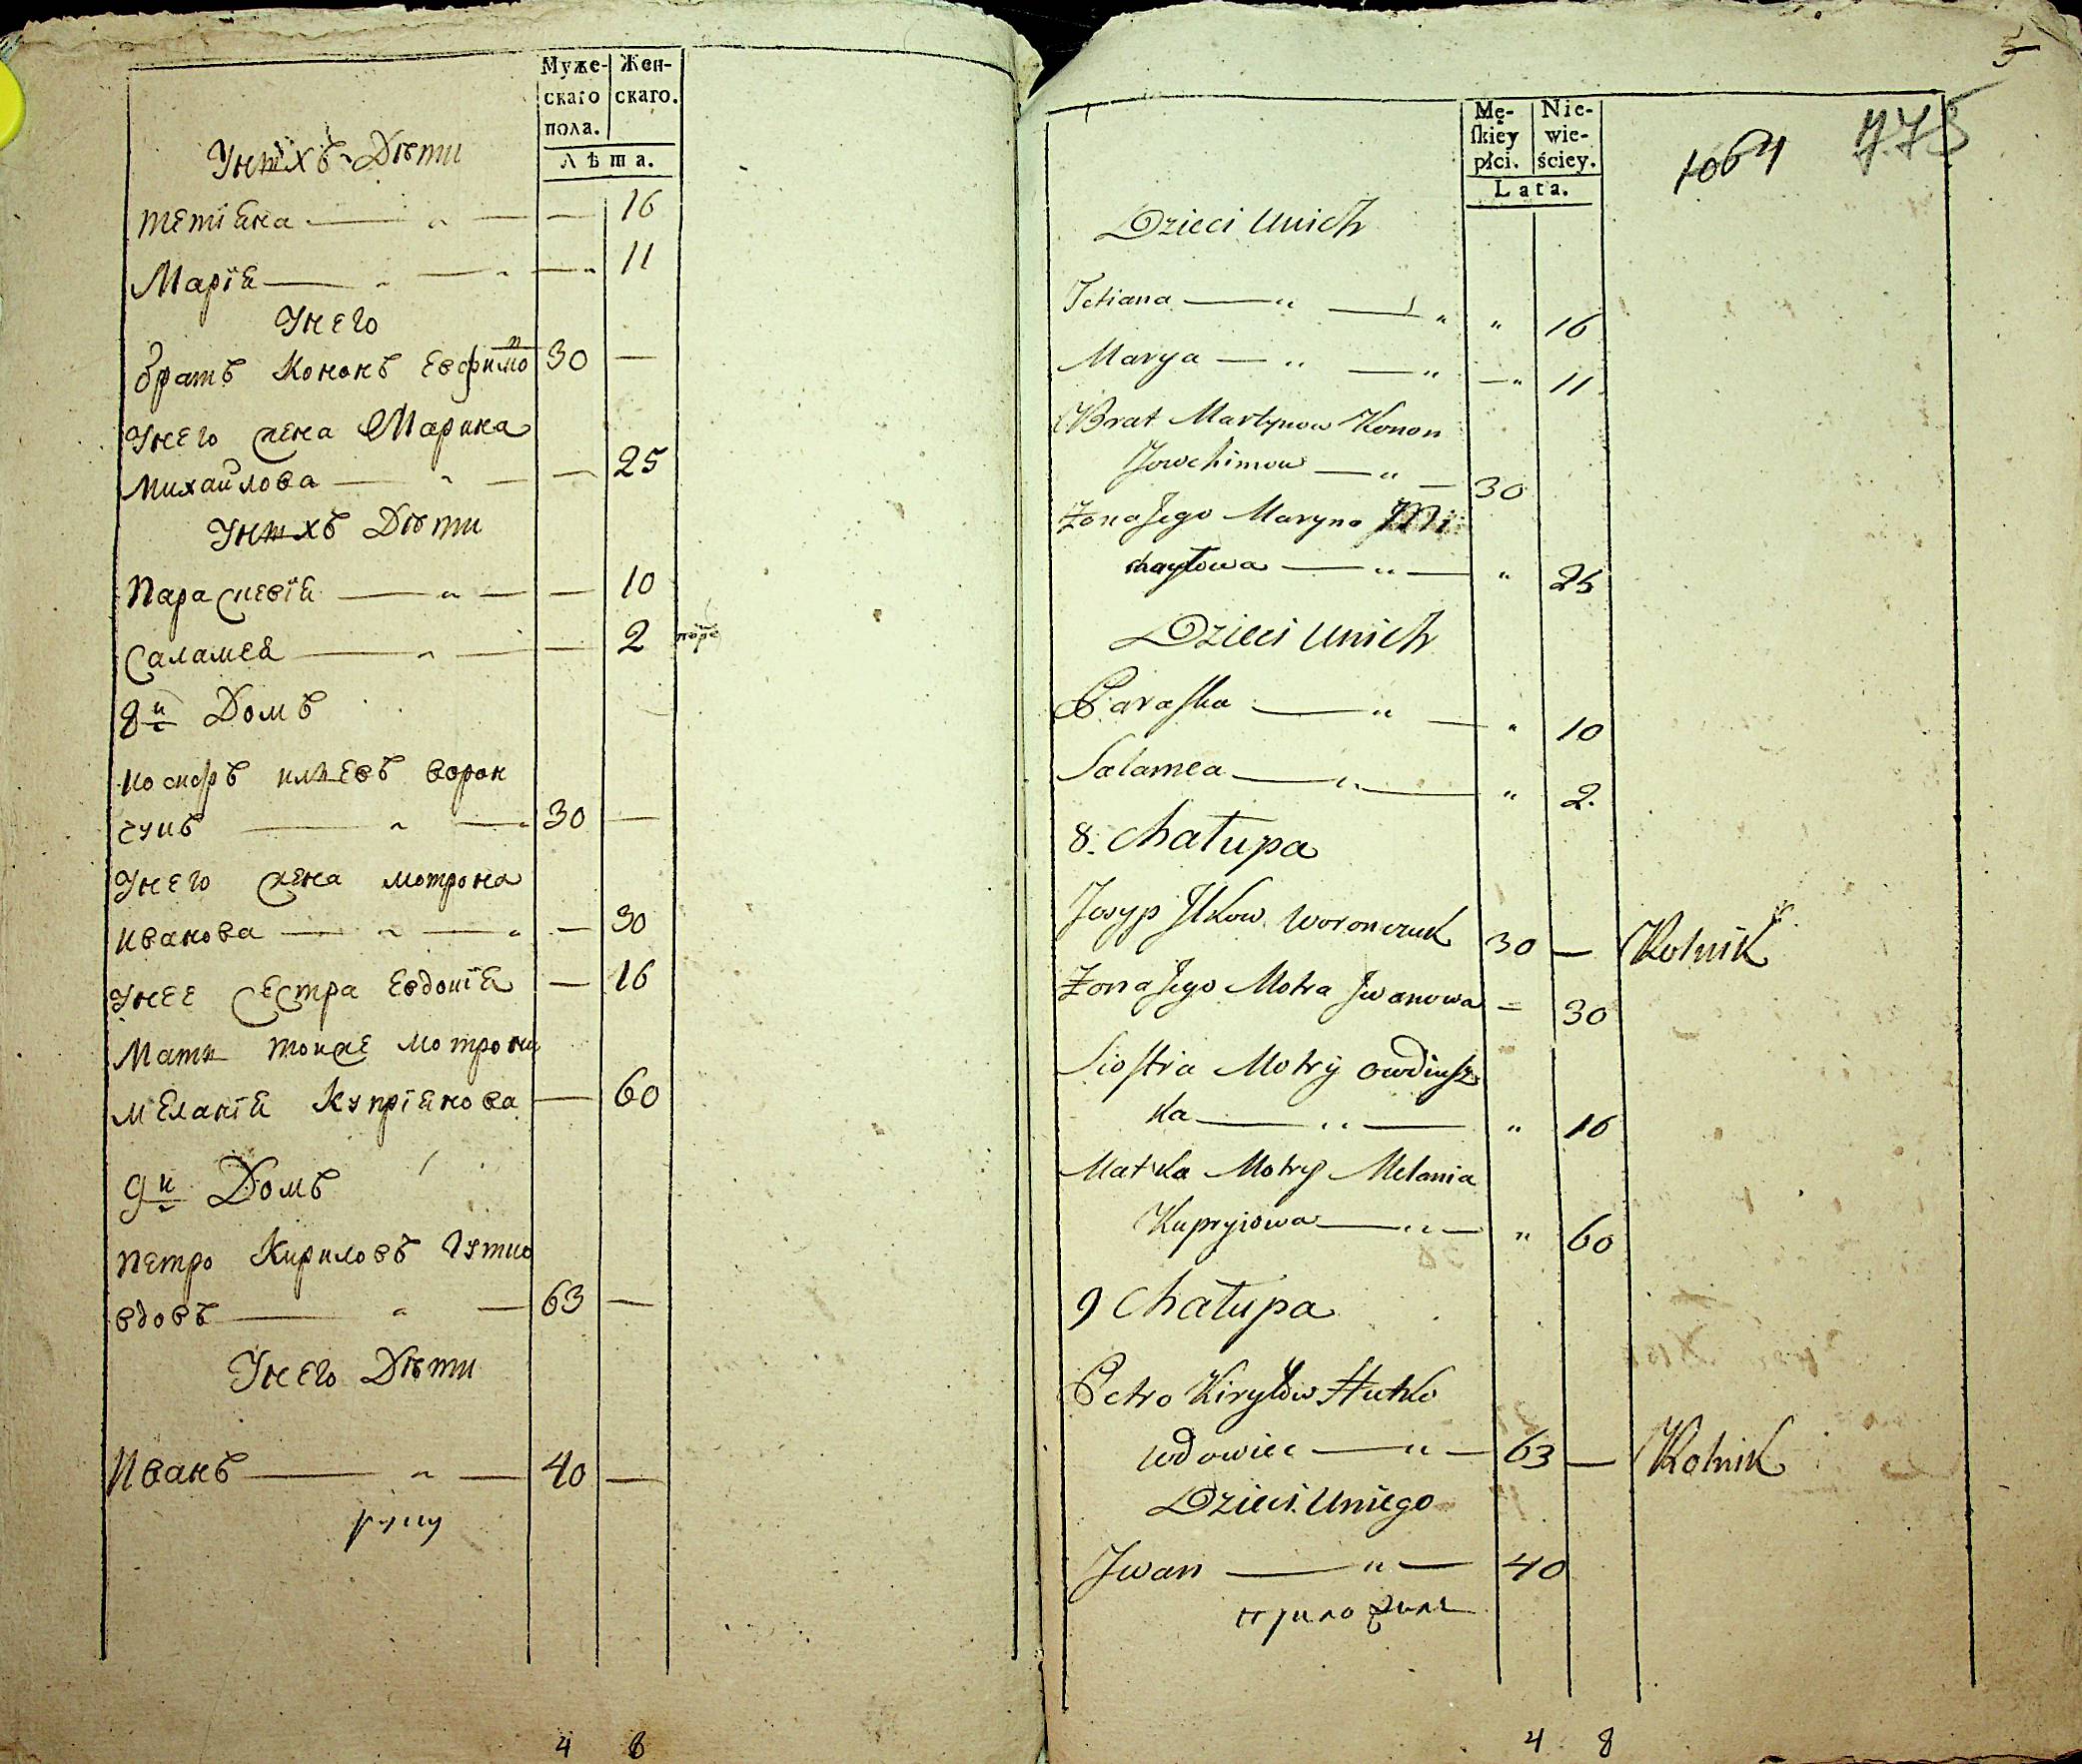 Муже- Жен-
скаго скаго.
пола.
Лѣта.
Унихъ Дѣти
Тетіяна — „ — — 16
Марія — „ — „ — „ 11
Унего
братъ Кононъ Евфимо в 30 —
Унего жена Марина
Михайлова — „ — — 25
Унихъ Дѣти
Параскевія — „ — — 10
Саламея — „ — — 2
8й Домъ
Иосифъ Илковъ Ворон
чукъ — „ — 30 —
Унего жена Мотрона
Иванова — „ — „ — 30
Унее Сестра Евдокія — 16
Мати тоиже Мотроны
Меланія Купріянова — 60
9й Домъ
Петро Кириловъ Гутко
вдовъ — „ — 63 —
Унего Дѣти
Иванъ — „ — 40 —
руку
4 8
5
Mę- Nie-
ſkiey wie-
płci. ściey.
Lata.
1064 775
Dzieci Unich
Tetiana — „ — „ „ 16
Marya — „ — „ — „ 11
Brat Martynow Konon
Jowchimow — „ — 30
Żona Jego Maryna Mi
chayłowa — „ — „ 25
Dzieci Unich
Paraſka — „ — „ 10
Salamea — „ — „ 2.
8. Chałupa
Josyp Jlkow Woronczuk 30 — Rolnik
Żona Jego Motra Jwanowa = 30
Sioſtra Motry Owdiuſz
ka — „ — „ 16
Matka Motry Melania
Kupryiowa — „ — „ 60
9 Chałupa
Petro Kiryłow Hutko
wdowiec — „ — 63 — Rolnik
Dzieci Uniego
Jwan — „ — 40
приложилъ
4 8